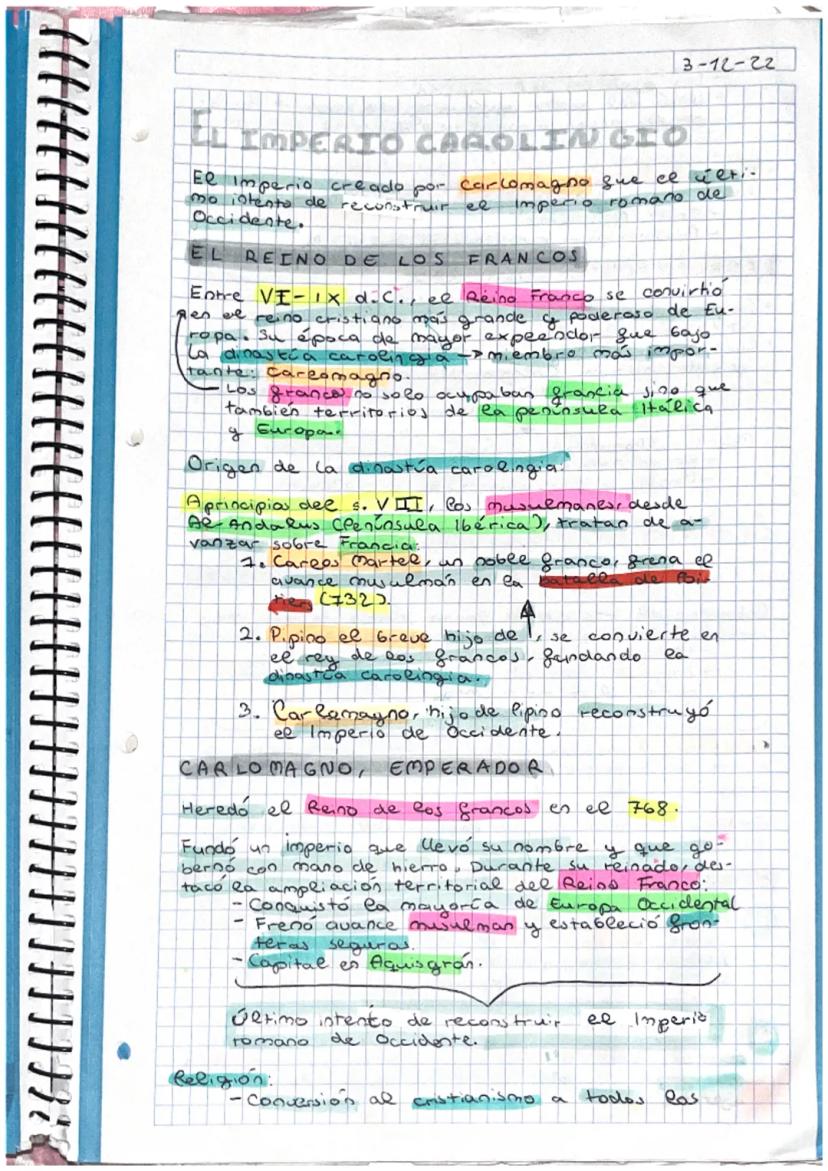 3-12-22
EL IMPERIO CAROLINGIO
El Imperio creado por Carlomagno fue el últi-
mo intento de reconstruir el Imperio romano de
Occidente.
EL REINO DE LOS FRANCOS
Entre VI-IX d.C., el Reino Franco se convirtió
en el reino cristiano más grande y poderoso de Eu-
ropa. Su época de mayor expeendor fue bajo
la dinastía carolingia → miembro más impor-
tante: Carlomagno.
Los francos no solo ocupaban francia sino que
también territorios de la península Itálica
y Europa.
Origen de la dinastía carolingia:
A principios del s. VIII, los musulmanes, desde
Al-Andalus (Península Ibérica), tratan de a-
vanzar sobre Francia:
1. Carlos Martel, un noble franco, frena el
avance musulmán en la batalla de Poi-
tiers (732).
2. Pipino el breve hijo de ↑, se convierte en
el rey de los francos, fundando la
dinastía carolingia.
3. Carlomagno, hijo de Pipino reconstruyó
el Imperio de Occidente.
CARLOMAGNO, EMPERADOR
Heredó el Reino de los francos en el 768.
Fundó un imperio que llevó su nombre y que go-
bernó con mano de hierro. Durante su reinado, des-
tacó la ampliación territorial del Reino Franco:
- Conquistó la mayoría de Europa Occidental
- Frenó avance musulman y estableció fron-
teras seguras.
- Capital en Aquisgrán.
Último intento de reconstruir el Imperio
romano de Occidente.
Religión:
- Conversión al cristianismo a todos los